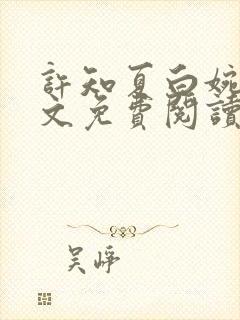 許知夏白婉
文免費閱讀
吴崢